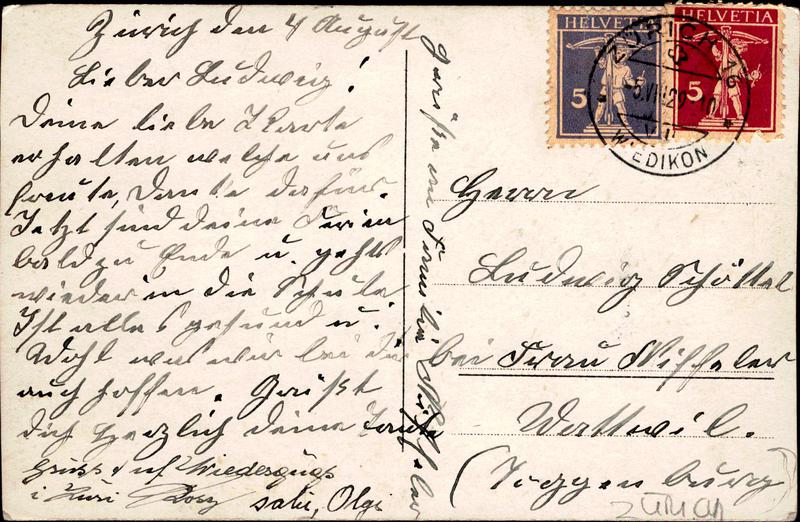 Zürich den 4 August
Lieber Ludwig!
Deine liebe Karte
erhalten welche uns
freute, Danke dafür.
Jetzt sind deine Ferien
bald zu Ende u. gehts
wieder in die Schule
Ist alles gesund u.
Wohl was wir bei dir
auch hoffen. Grüsst
dich herzlich deine Tante
Gruss auf Wiedersehn
i Züri Rosy
salü, Olgi
Grüsse an Familie Niffeler
HELVETIA
5
HELVETIA
5
ZÜRICH 16
WIEDIKON
Herrn
Ludwig Schöttel
bei Frau Niffeler
Wattwil.
(Toggenburg)
ZÜRICH